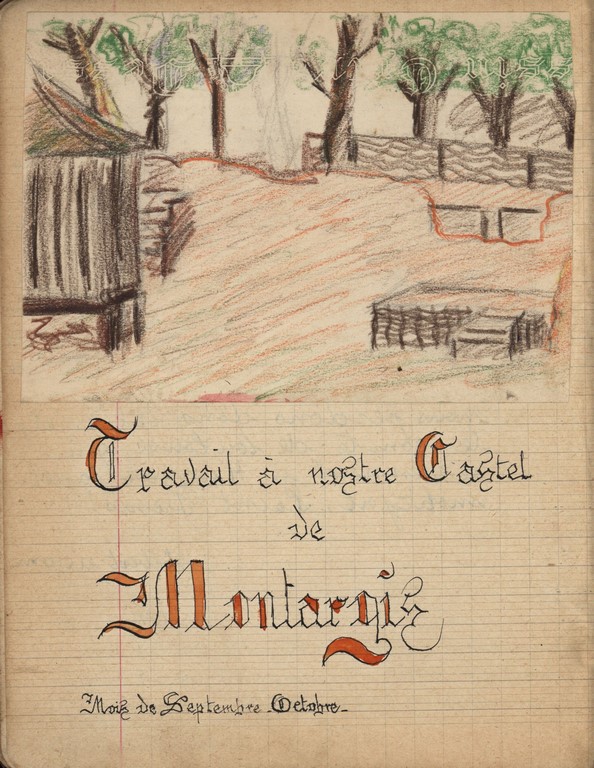 Travail à nostre Castel
de
Montargis
Mois de Septembre - Octobre -